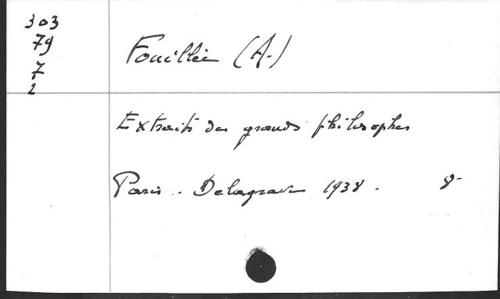 303
79
7
2
Fouillée (A.)
Extraits des grands philosophes
Paris. Delagrave 1938. 8°